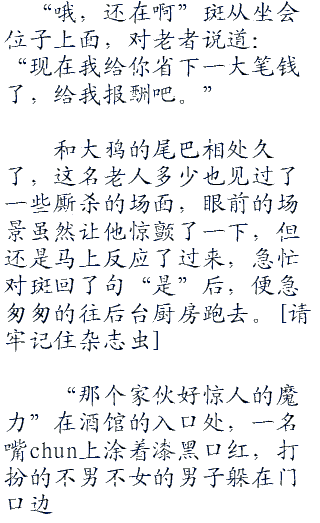 “哦，还在啊”斑从坐会
位子上面，对老者说道：
“现在我给你省下一大笔钱
了，给我报酬吧。”
和大鸦的尾巴相处久
了，这名老人多少也见过了
一些厮杀的场面，眼前的场
景虽然让他惊颤了一下，但
还是马上反应了过来，急忙
对斑回了句“是”后，便急
匆匆的往后台厨房跑去。[请
牢记住杂志虫]
“那个家伙好惊人的魔
力”在酒馆的入口处，一名
嘴chun上涂着漆黑口红，打
扮的不男不女的男子躲在门
口边